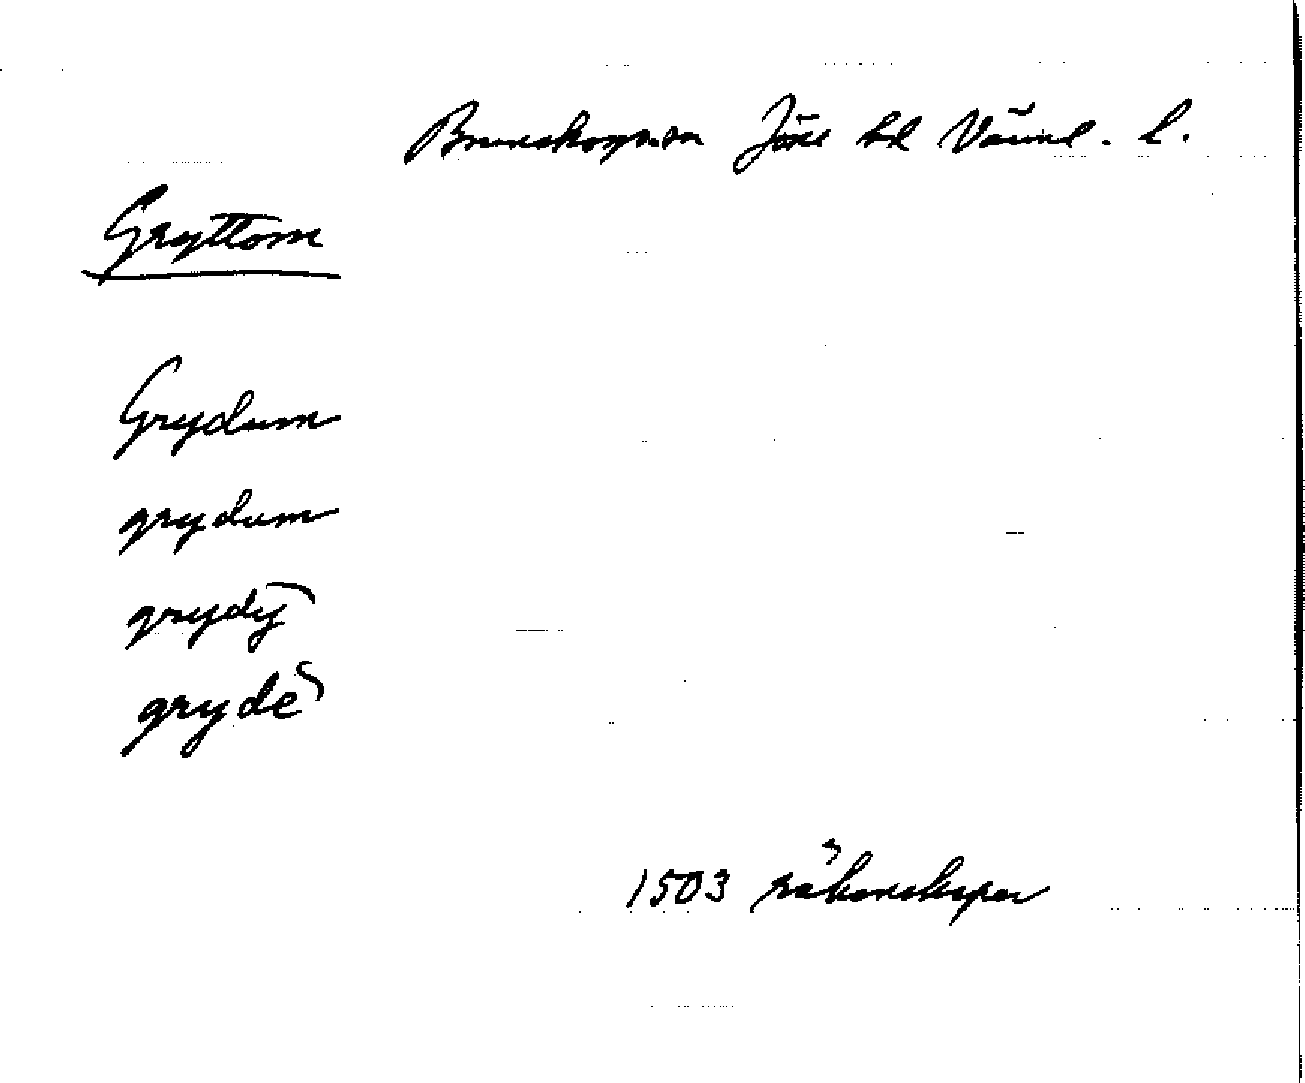 Brunskogs sn Jösse hd Värml. l.
Gryttom
Grydum
grydum
grydy
gryde
1503 räkenskaper